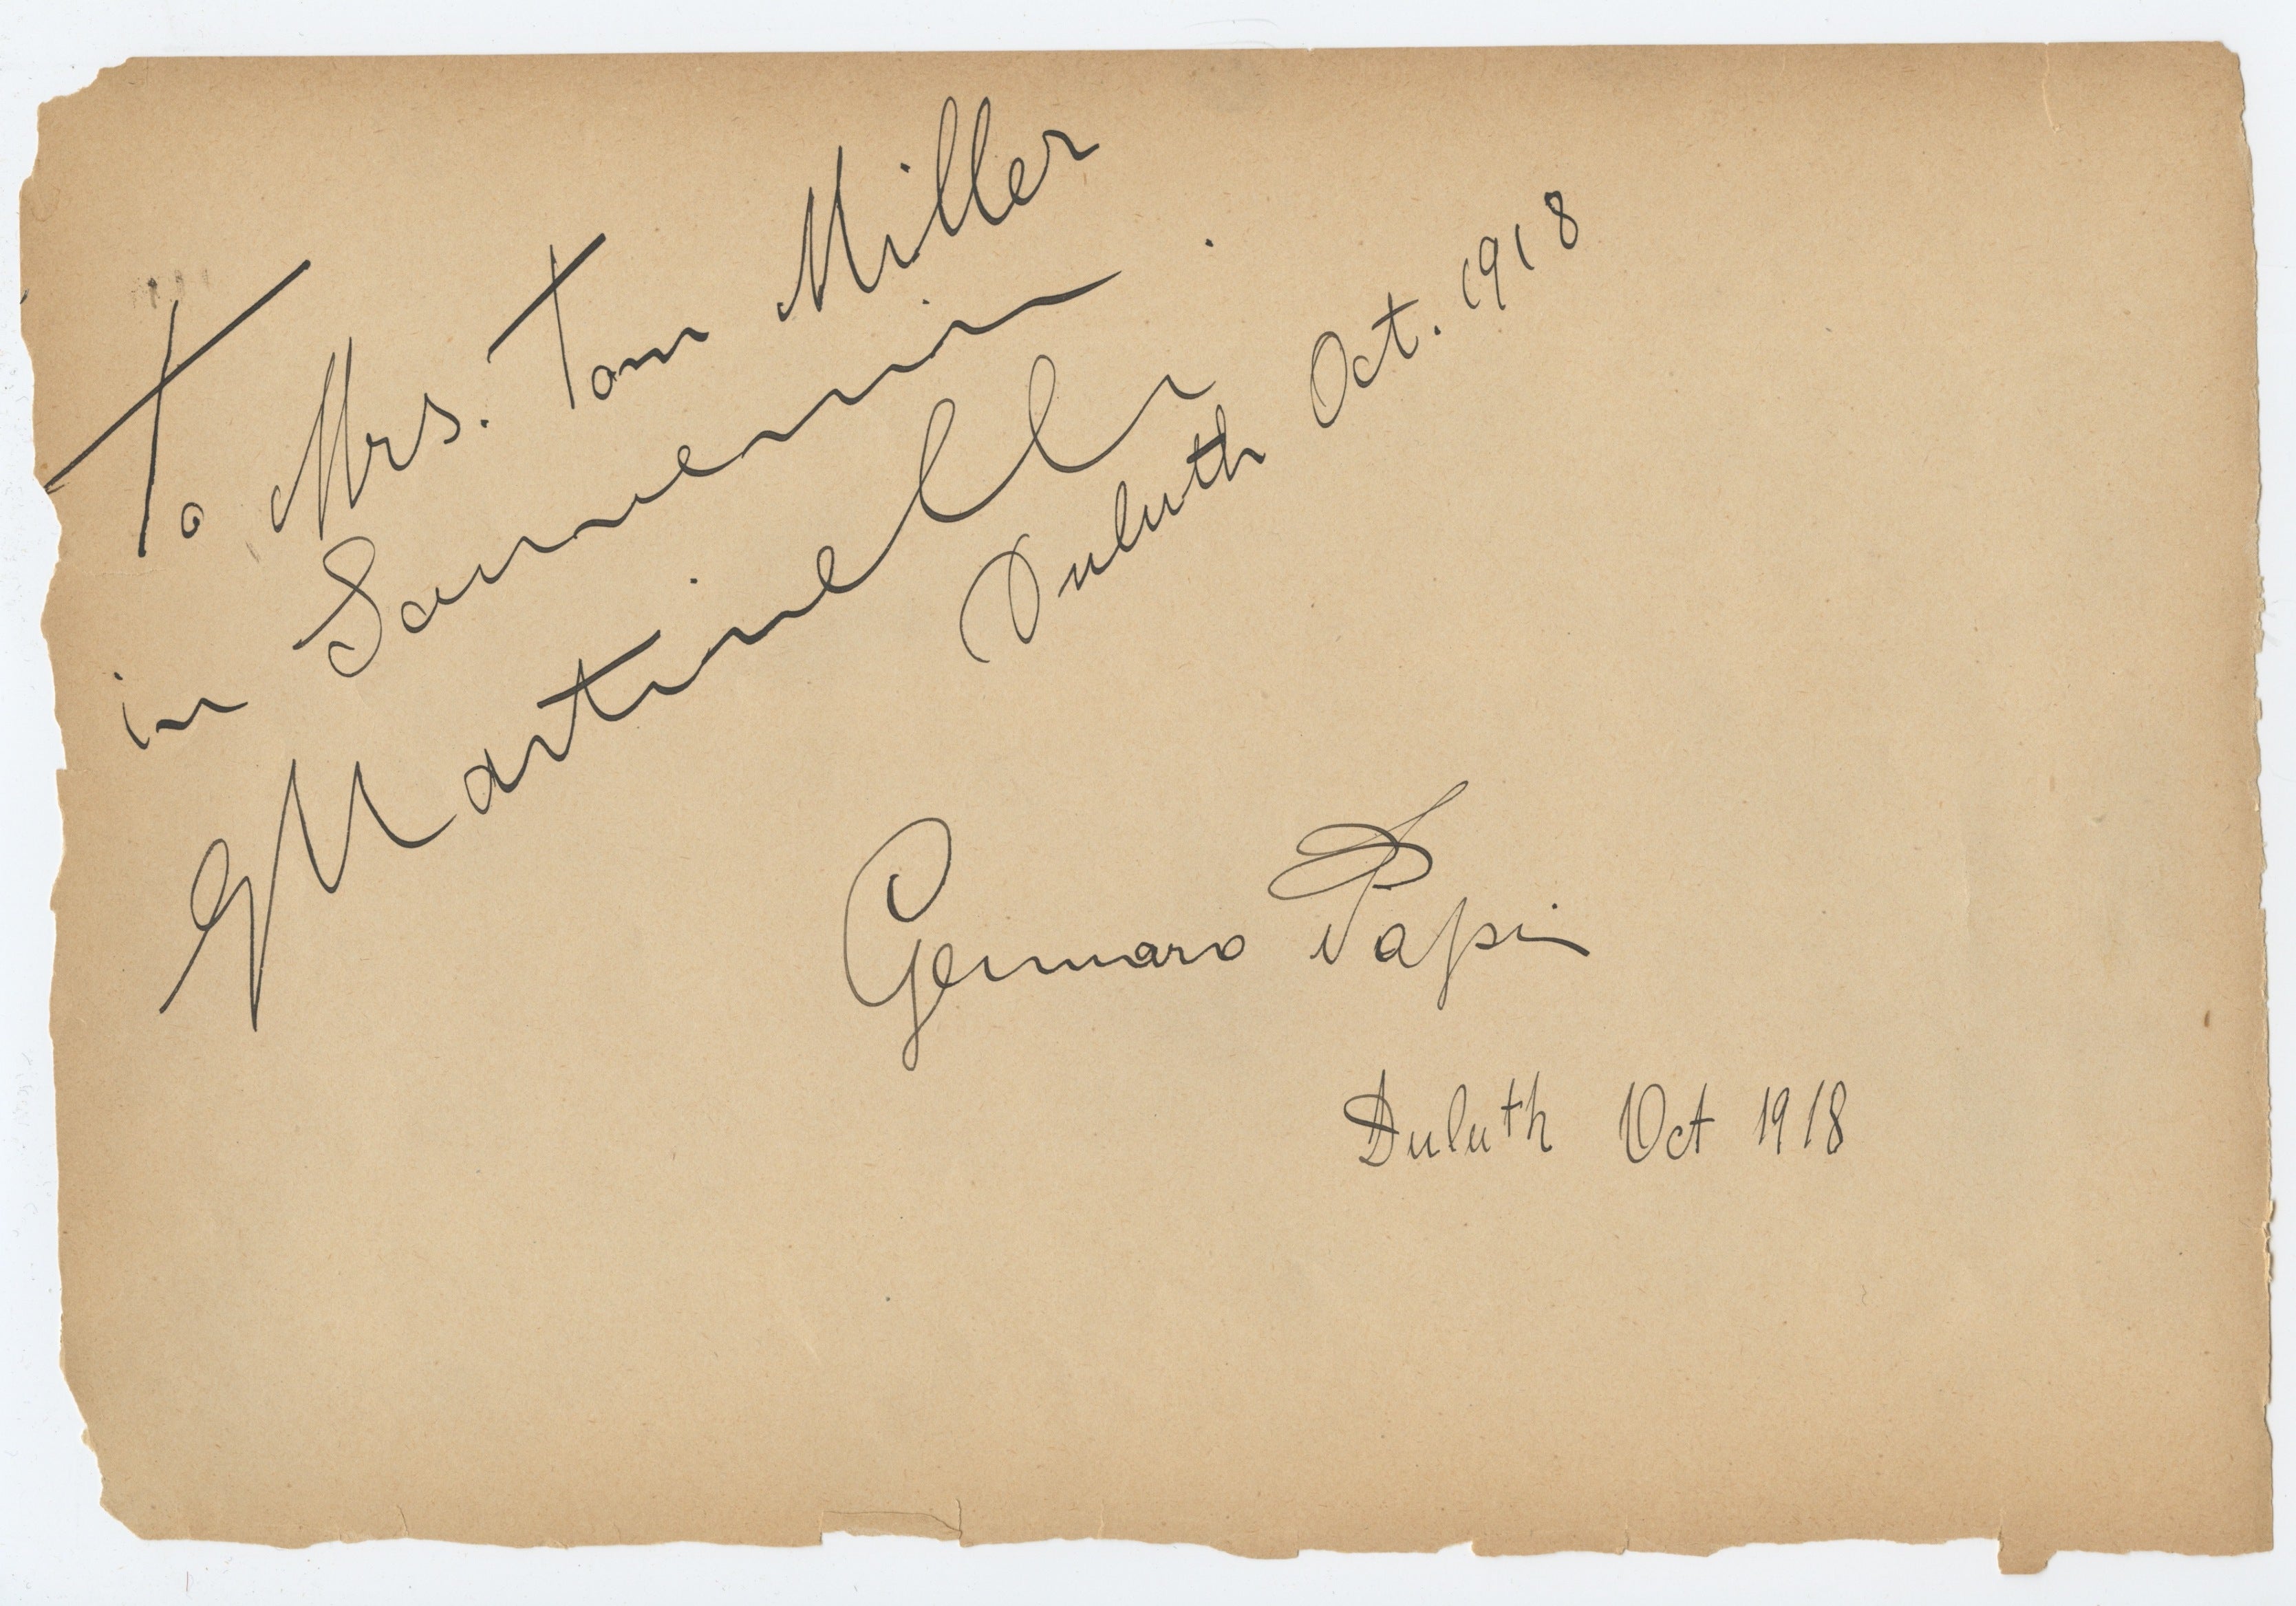 To Mrs. Tom Miller
in Souvenir
GMartinelli
Duluth Oct. 1918
Gennaro Papi
Duluth Oct 1918